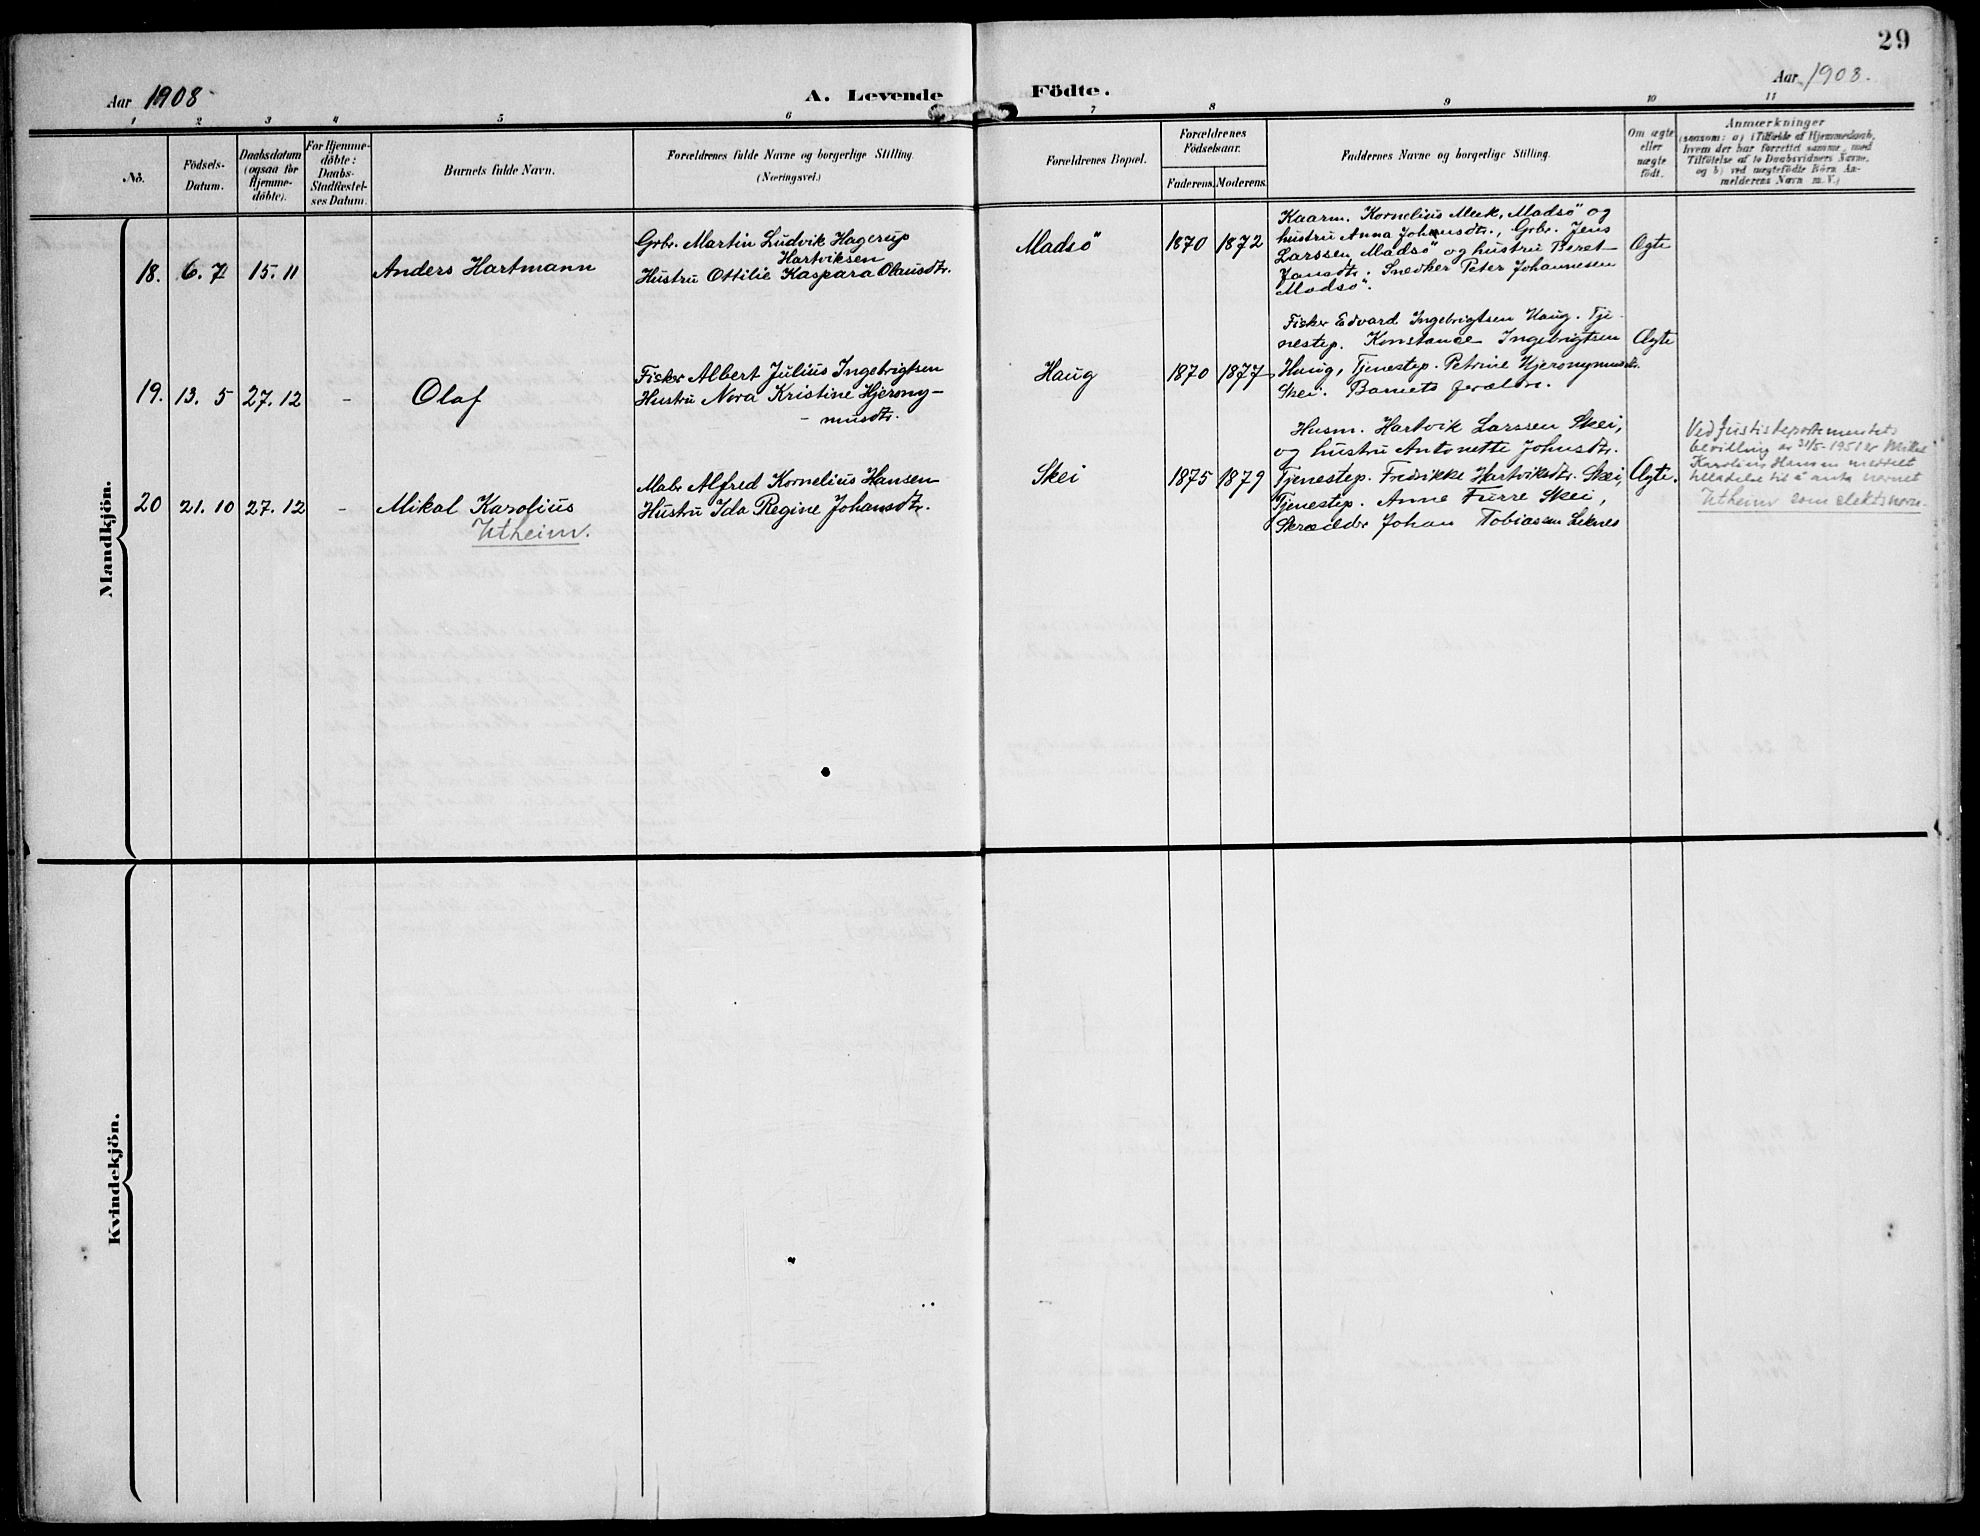 29
Aar 1908
A. Levende Födte.
Aar 1908.
1 2 3 4 5 6 7 8 9 10 11
No.
Födsels-
Datum.
Daabsdatum
(ogsaa for
Hjemme-
döbte).
For Hjemme-
döbte:
Daabs-
Stadfæstel-
ses Datum.
Barnets fulde Navn.
Forældrenes fulde Navne og borgerlige Stilling.
(Næringsvei.)
Forældrenes Bopæl.
Forældrenes
Födselsaar.
Faderens. Moderens.
Faddernes Navne og borgerlige Stilling.
Om ægte
eller
uægte
födt.
Anmærkninger
(saasom: a) i Tilfælde af Hjemmedaab,
hvem der har forrettet samme, med
Tilföielse af to Daabsvidners Navne,
og b) ved uægtefödte Börn An-
melderens Navn m. V.)
Mandkjön.
18. 6. 7 15. 11
Anders Hartmann
Grbr. Martin Ludvik Hagerup
Hartviksen
Hustru Ottilie Kaspara Olausdtr.
Madsö
1870 1872
Kaarm. Kornelius Meek, Madsö og
hustru Anna Johnsdtr., Grbr. Jens
Larssen Madsö og hustru Beret
Jonsdtr. Snedker Peter Johannesen
Madsö.
Ægte
19. 13. 5 27. 12 -
Olaf
Fisker Albert Julius Ingebrigtsen
Hustru Nora Kristine Hjerony-
- musdtr.
Haug
1870 1877
Fisker Edvard Ingebrigtsen Haug. Tje-
nestep. Konstance Ingebrigtsen
Haug, Tjenestep. Petrine Hjeronymusdtr.
Skei. Barnets forældre.
Ægte
20 21. 10 27. 12 -
Mikal Karolius
Utheim.
Mabr Alfred Kornelius Hansen
Hustru Ida Regine Johansdtr.
Skei
1875 1879
Husm. Hartvik Larssen Skei,
og hustru Antonette Johnsdtr.
Tjenestep. Fredrikke Hartviksdtr. Skei,
Tjenestep. Anne Furre Skei,
Skrædder Johan Tobiassen Leknes
Ægte.
Ved Justisdepartementets
bevilling av 31/5-1951 er Mikal
Karolius Hansen meddelt
tillatelse til å anta navnet
Utheim som slektsnavn.
Kvindekjön.